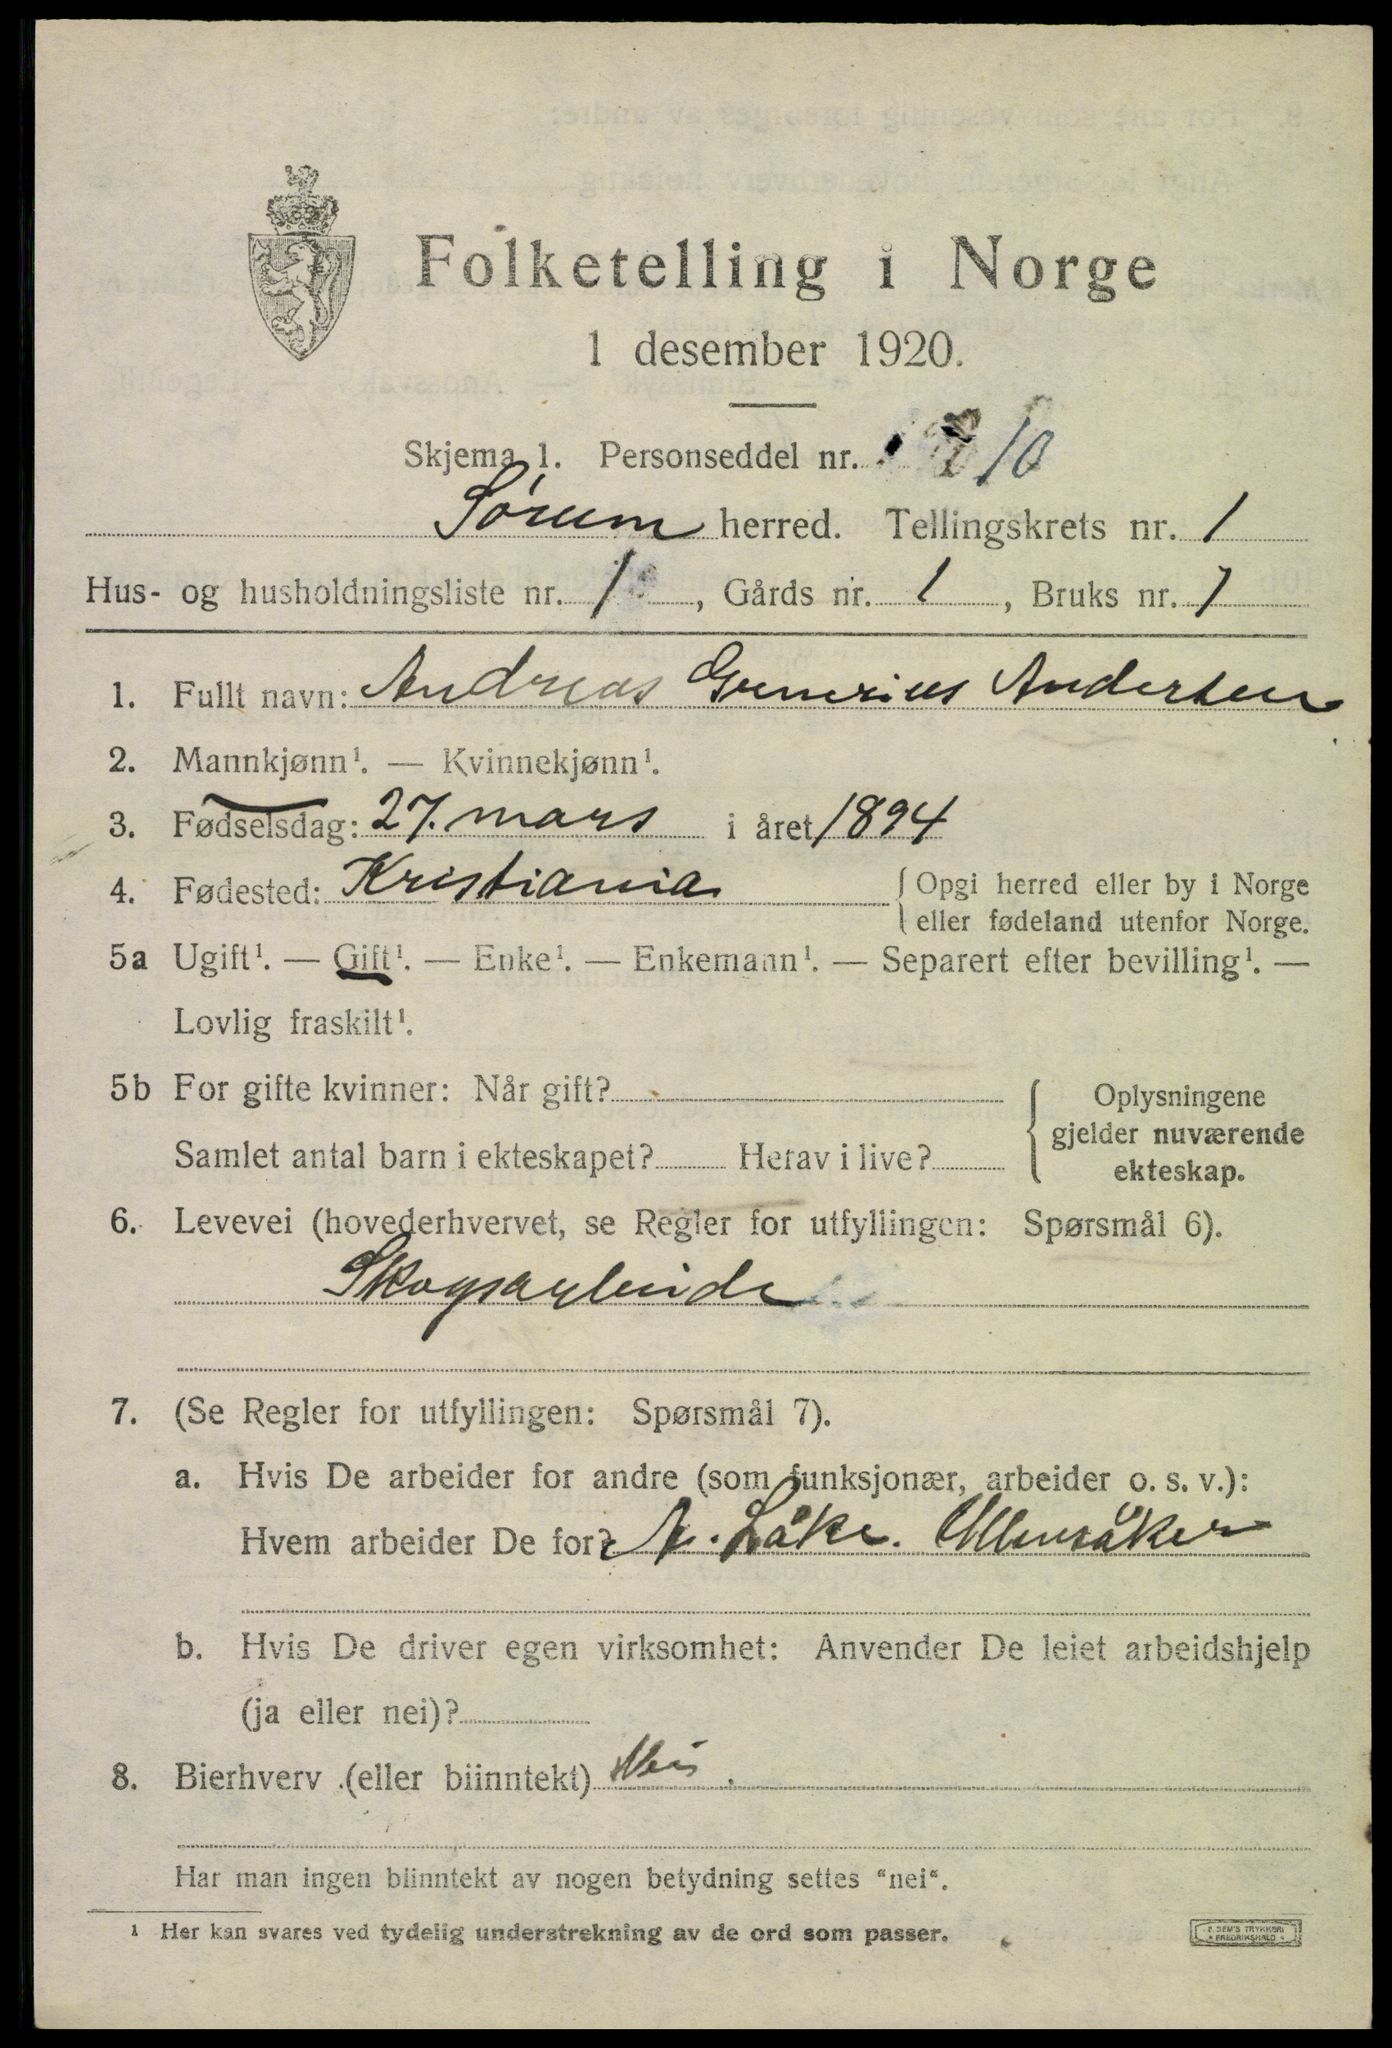 Folketelling i Norge
1 desember 1920.
Skjema 1. Personseddel nr. 10
Sørum herred. Tellingskrets nr. 1
Hus- og husholdningsliste nr. 1, Gårds nr. 1, Bruks nr. 7
1. Fullt navn: Andreas Grenerius Andersen
2. Mannkjønn¹. — Kvinnekjønn¹.
3. Fødselsdag: 27. mars i året 1894
4. Fødested: Kristiania { Opgi herred eller by i Norge
eller fødeland utenfor Norge.
5a Ugift¹. — Gift¹. — Enke¹. — Enkemann¹. — Separert efter bevilling¹. —
Lovlig fraskilt¹.
5b For gifte kvinner: Når gift? { Oplysningene
gjelder nuværende
Samlet antal barn i ekteskapet? Herav i live?
ekteskap.
6. Levevei (hovederhvervet, se Regler for utfyllingen: Spørsmål 6).
Skogsarbeide
7. (Se Regler for utfyllingen: Spørsmål 7).
a. Hvis De arbeider for andre (som funksjonær, arbeider o. s. v.):
Hvem arbeider De for? A. Låke. Ullensåker
b. Hvis De driver egen virksomhet: Anvender De leiet arbeidshjelp
(ja eller nei)?
8. Bierhverv (eller biinntekt) Nei.
Har man ingen biinntekt av nogen betydning settes "nei".
¹ Her kan svares ved tydelig understrekning av de ord som passer.
E. SEM'S TRYKKERI
FREDRIKSHALD